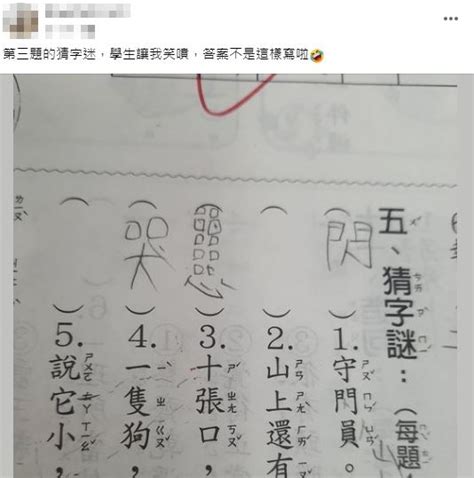 第三題的猜字迷，學生讓我笑噴，答案不是這樣寫啦🤣
五、猜字謎：（每題
（閃）1.守門員。
（ ）2.山上還有
（ ）3.十張口，
（哭）4.一隻狗，
（ ）5.說它小，